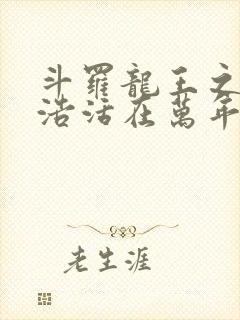 斗羅龍王之
浩活在萬年
老生涯